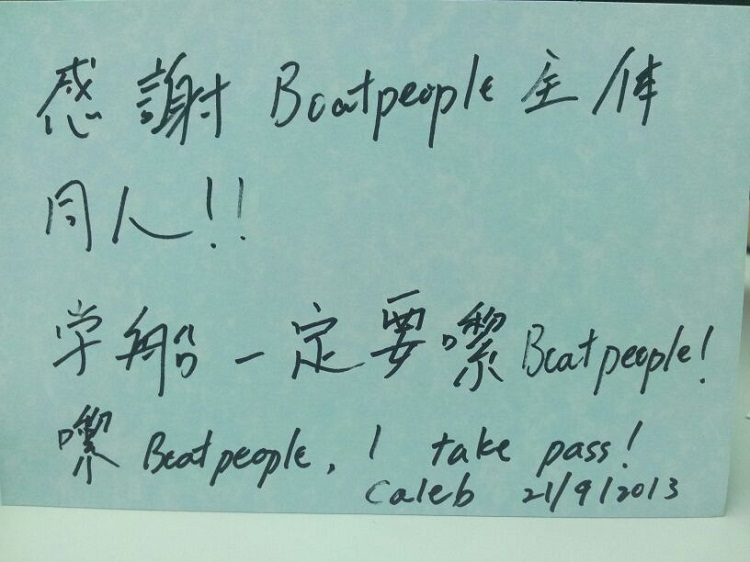 感謝 Boatpeople 全体
同人!!
学船一定要嚟 Boatpeople!
嚟 Boatpeople, 1 take pass!
Caleb 21/9/2013